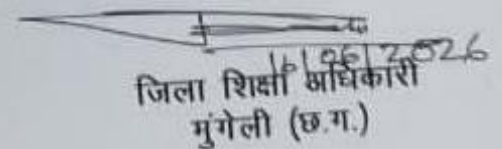 16/06/2026
जिला शिक्षा अधिकारी
मुंगेली (छ.ग.)